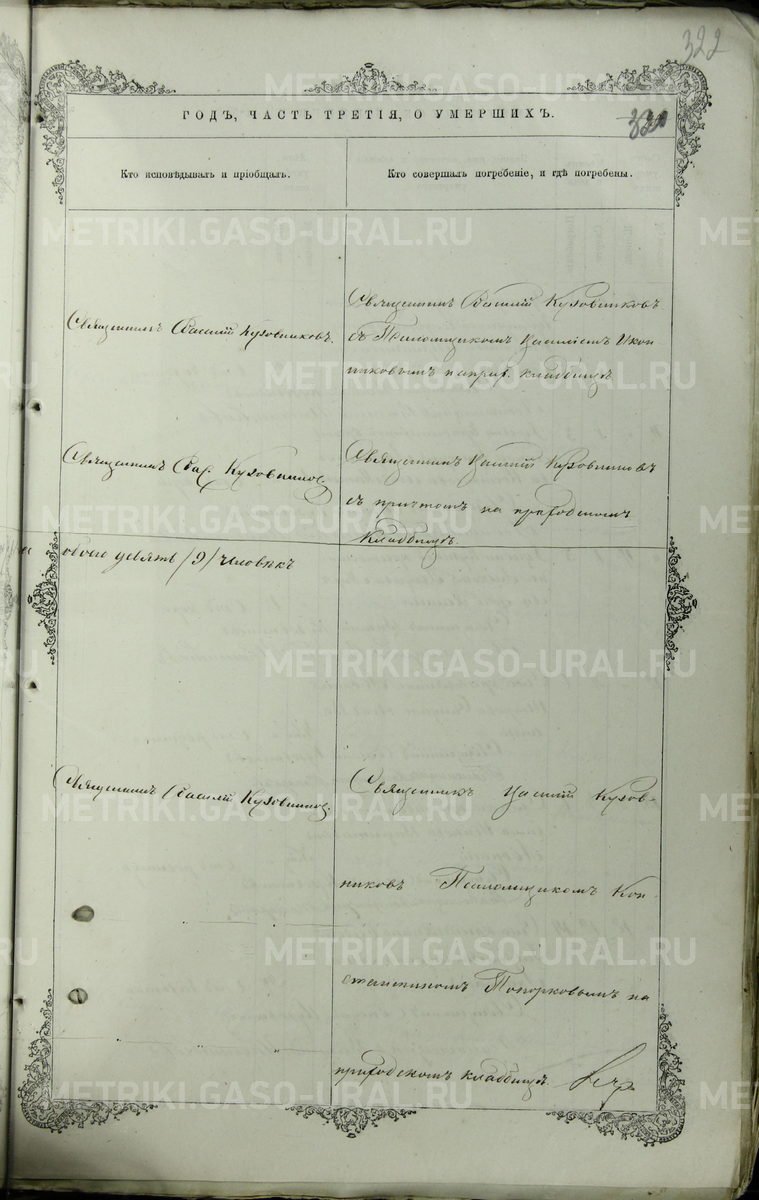 322
ГОДЪ, ЧАСТЬ ТРЕТІЯ, О УМЕРШИХЪ.
Кто исповѣдывалъ и пріобщалъ.
Кто совершалъ погребеніе, и гдѣ погребены.
Священникъ Василій Кузовниковъ.
Священникъ Василій Кузовниковъ
съ Псаломщикомъ Василіемъ Икон-
никовымъ на приход. кладбищѣ
Священникъ Вас. Кузовников.
Священникъ Василій Кузовниковъ
съ причтомъ на приходскомъ
кладбищѣ.
обоего девять /9/ человѣкъ
Священникъ Василій Кузовников.
Священникъ Василій Кузов-
никовъ Псаломщикомъ Кон-
стантиномъ Топорковымъ на
приходскомъ кладбищѣ.
METRIKI.GASO-URAL.RU